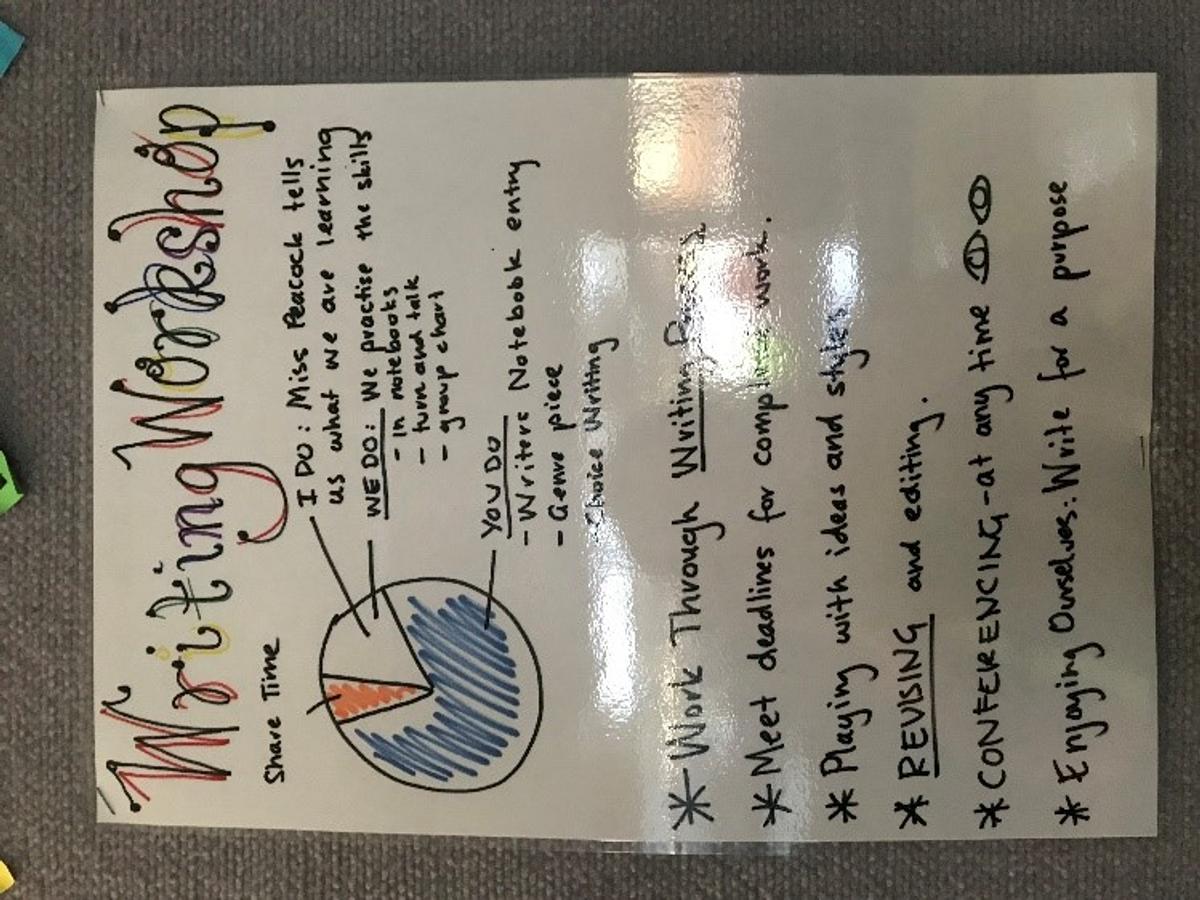 Writing Workshop
Share Time
I DO: Miss Peacock tells
us what we are learning
WE DO: We practise the skills
- in notebooks
- turn and talk
- group chart
YOU DO
- Writers Notebook entry
- Genre piece
- Choice Writing
* Work Through Writing Process
* Meet deadlines for completing work.
* Playing with ideas and styles
* REVISING and editing.
* CONFERENCING - at any time
* Enjoying Ourselves: Write for a purpose